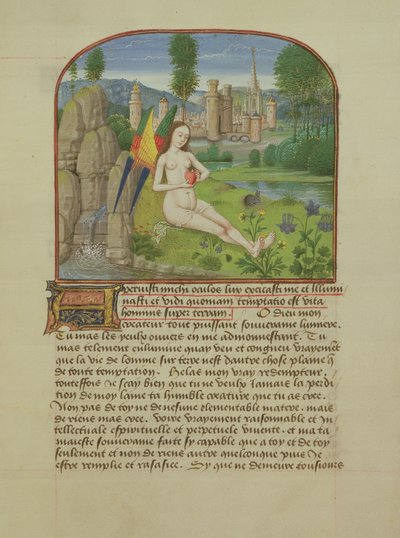 Aperuisti michi oculos lux excitasti me et illumi
nasti et vidi quoniam temptatio est vita
hominis super terram. O dieu mon
createur tout puissant souveraine lumiere.
Tu mas les yeulx ouvers en me admonnestant. Tu
mas telement enlumine quay veu et congneu vrayement
que la vie de lomme sur terre nest dautre chose plaine q̃
de toute temptation. Helas mon vray redempteur.
touteffois Je scay bien que tu ne veulx Jamais la perdi
tion de mon lame ta humble creature que tu as cree.
Non pas de toy ne de nesune elementable matere. mais
de riens mas cree. Voire vrayement raisonnable et in
tellectuale espirituelle et perpetuele vivente. et ma ta
maieste souveraine faite sy capable que a toy et de toy
seulement et non de riens autre quelconque puis Je
estre remplie et rasasiee. Sy que ne demeure tousiours